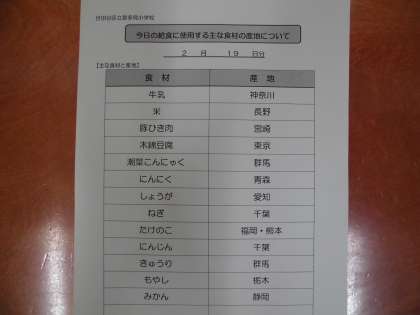 今日の給食に使用する主な食材の産地について
2 月 19 日分
【主な食材と産地】
食 材 産 地
牛乳 神奈川
米 長野
豚ひき肉 宮崎
木綿豆腐 東京
こんにゃく 群馬
にんにく 青森
しょうが 愛知
ねぎ 千葉
たけのこ 福岡・熊本
にんじん 千葉
きゅうり 群馬
もやし 栃木
みかん 静岡